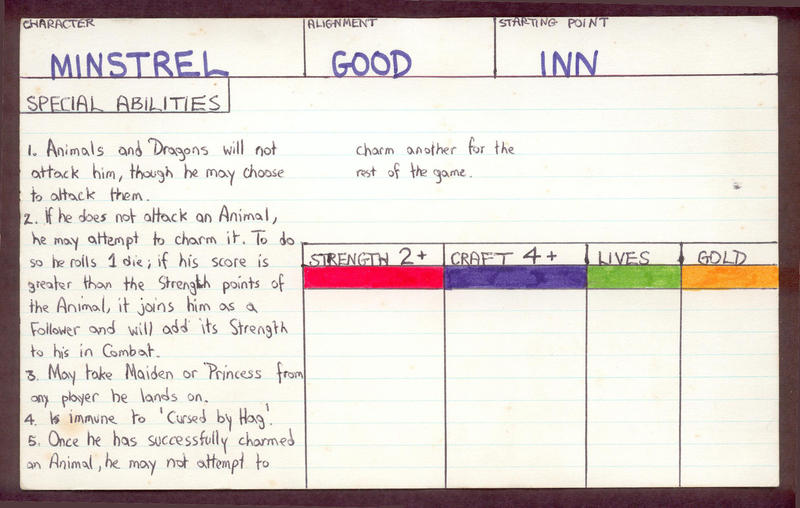 CHARACTER
MINSTREL
ALIGNMENT
GOOD
STARTING POINT
INN
SPECIAL ABILITIES
1. Animals and Dragons will not
attack him, though he may choose
to attack them.
2. If he does not attack an Animal,
he may attempt to charm it. To do
so he rolls 1 die; if his score is
greater than the Strength points of
the Animal, it joins him as a
Follower and will add its Strength
to his in Combat.
3. May take Maiden or Princess from
any player he lands on.
4. Is immune to 'Cursed by Hag'.
5. Once he has successfully charmed
an Animal, he may not attempt to
charm another for the
rest of the game.
STRENGTH 2+
CRAFT 4+
LIVES
GOLD